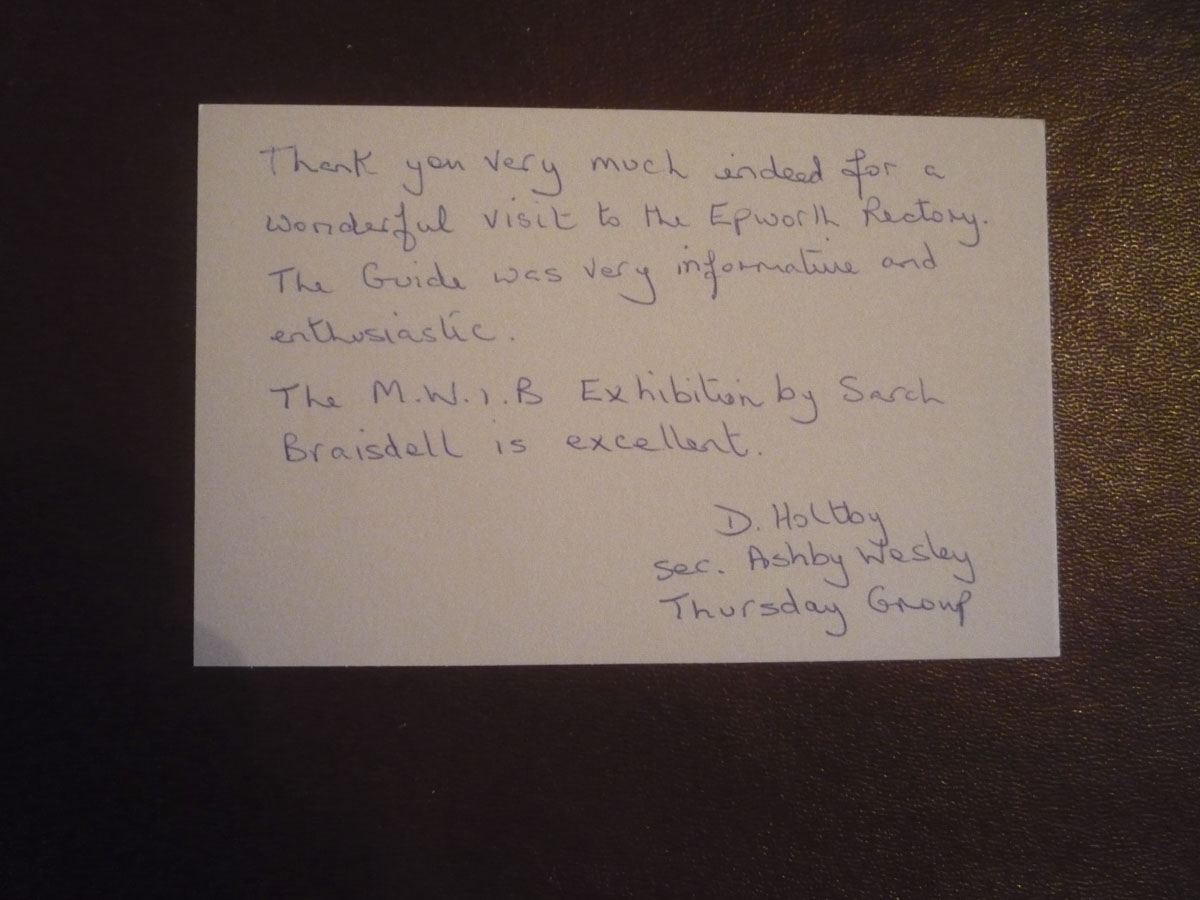 Thank you very much indeed for a
wonderful visit to the Epworth Rectory.
The Guide was very informative and
enthusiastic.
The M.W.I.B Exhibition by Sarah
Braisdell is excellent.
D. Holtby
sec. Ashby Wesley
Thursday Group